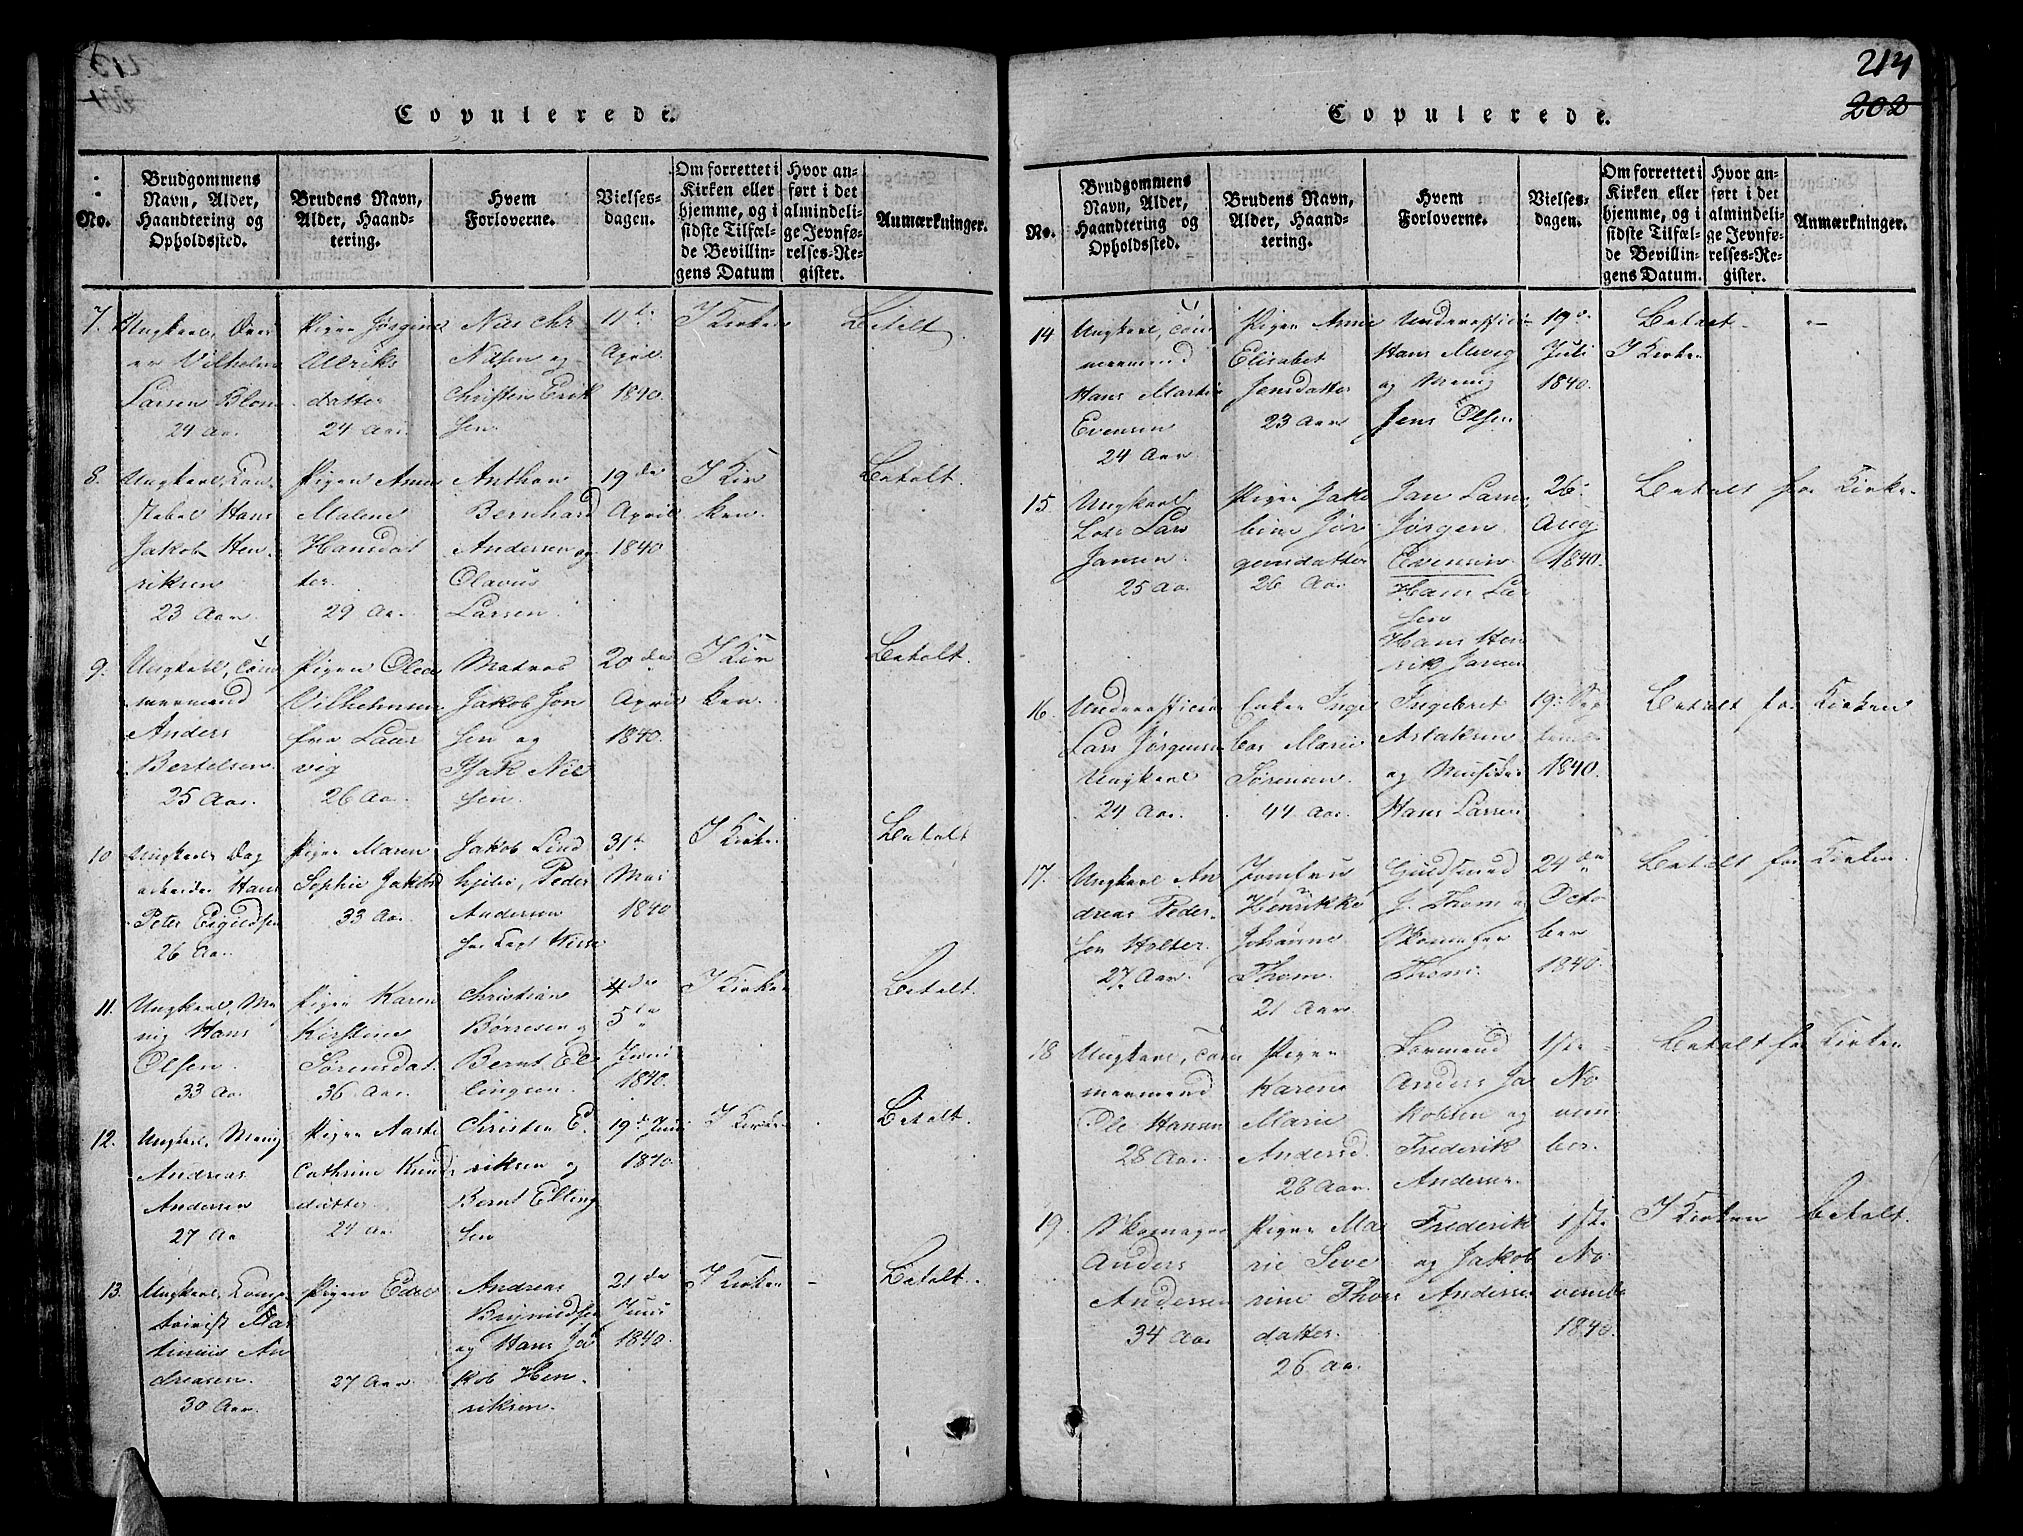 Copulerede.
No.
Brudgommens
Navn, Alder,
Haandtering og
Opholdssted.
Brudens Navn,
Alder, Haand-
tering.
Hvem
Forloverne.
Vielses-
dagen.
Om forrettet i
Kirken eller
hjemme, og i
sidste Tilfæl-
de Bevillin-
gens Datum
Hvor an-
ført i det
almindeli-
ge Jevnfø-
relses-Re-
gister.
Anmærkninger.
7.
Ungkarl,
Vilhelm
Larsen Blom
24 Aar.
Pigen Jørgine
Ullriks
datter
24 Aar
Nils Chr
Nilsen og
Christen Erik
sen
11te
April
1840.
I Kirken
Betalt
8.
Ungkarl, Con
stabel Hans
Jakob Hen
riksen
23 Aar
Pigen Anne
Malene
Hansdat
ter.
29 Aar.
Anthon
Bernhard
Andersen og
Olavus
Larsen.
19de
April
1840
I Kir
ken.
Betalt.
9.
Ungkarl, Tøm
mermand
Anders
Bertelsen
25 Aar.
Pigen Olea
Vilhelmine
fra Laur
vig
26 Aar.
Matros
Jakob Jon
sen og
Isak Nil
sen.
20de
April
1840.
I Kir
ken.
Betalt.
10
Ungkarl Dag
arbeider Hans
Peter
26 Aar.
Pigen Maren
Sophie Jakobs
33 Aar.
Jakob Lind
hjelm, Peder
Andersen
31te
Mai
1840
I Kirken
Betalt
11.
Ungkarl, Me
nig Hans
Olsen.
33 Aar
Pigen Karen
Kirstine
Sørensdat.
36 Aar.
Christian
Børresen og
Bernt El
lingsen.
4de
5te
Juni
1840.
I Kirken
Betalt.
12.
Ungkarl, Menig
Andreas
Andersen
27 Aar
Pigen Aaste
Cathrine Knud
datter
24 Aar.
Christen E.
riksen og
Bernt Elling
sen
19de Juni
1840.
I Kirken
Betalt.
13.
Ungkarl,
Mar
tinius An
dreasen.
30 Aar.
Pigen Edel
27 Aar
Andreas
og Hans Ja
kob Hen
riksen.
21de
Juni
1840.
I Kirken
Betalt.
214
202
Copulerede.
No.
Brudgommens
Navn, Alder,
Haandtering og
Opholdssted.
Brudens Navn,
Alder, Haand-
tering.
Hvem
Forloverne.
Vielses-
dagen.
Om forrettet i
Kirken eller
hjemme, og i
sidste Tilfæl-
de Bevillin-
gens Datum.
Hvor an-
ført i det
almindeli-
ge Jevnfø-
relses-Re-
gister.
Anmærkninger.
14
Ungkarl, Tøm
mermand
Hans Martin
Evensen
24 Aar
Pigen Anne
Elisabet
Jensdatter
23 Aar
Underofficier
Hans
og Menig
Jens Olsen
19de
Juli
1840.
Betalt
I Kirken
15.
Ungkarl,
Lods Lars
Jansen.
25 Aar.
Pigen Jako
bine Jør
gensdatter
26 Aar.
Jan Larsen
Jørgen
Evensen
Hans Lar
sen
Hans Hen
rik Jansen
26
Aug
1840.
Betalt for Kirken
16.
Underofficier
Lars Jørgensen
Ungkarl
24 Aar.
Enken Inge
bor Marie
Sørensen.
44 Aar.
Ingebret
Aslaksen
og Musiker
Hans Larsen
19de Sep
tember
1840.
Betalt for Kirken
17.
Ungkarl An
dreas Peder
sen Holter.
27 Aar
Jomfru
Henrikke
Johanne
Thom.
21 Aar
Guldsmed
J. Thom og
Skomager
Thom.
24de
Octo
ber
1840.
Betalt for Kirken.
18
Ungkarl, Tøm
mermand
Ole Hansen
28 Aar.
Pigen
Karen
Marie
Andersd.
28 Aar.
Formand
Anders Ja
kobsen og
Frederik
Andersen.
1ste
No
vem
ber.
Betalt for Kirken
19.
Skomager
Anders
Andersen
34 Aar.
Pigen Ma
rie Seve
rine Thors
datter.
26 Aar.
Frederik
og Jakob
Andersen
1ste
No
vember
1840.
I Kirken
Betalt.